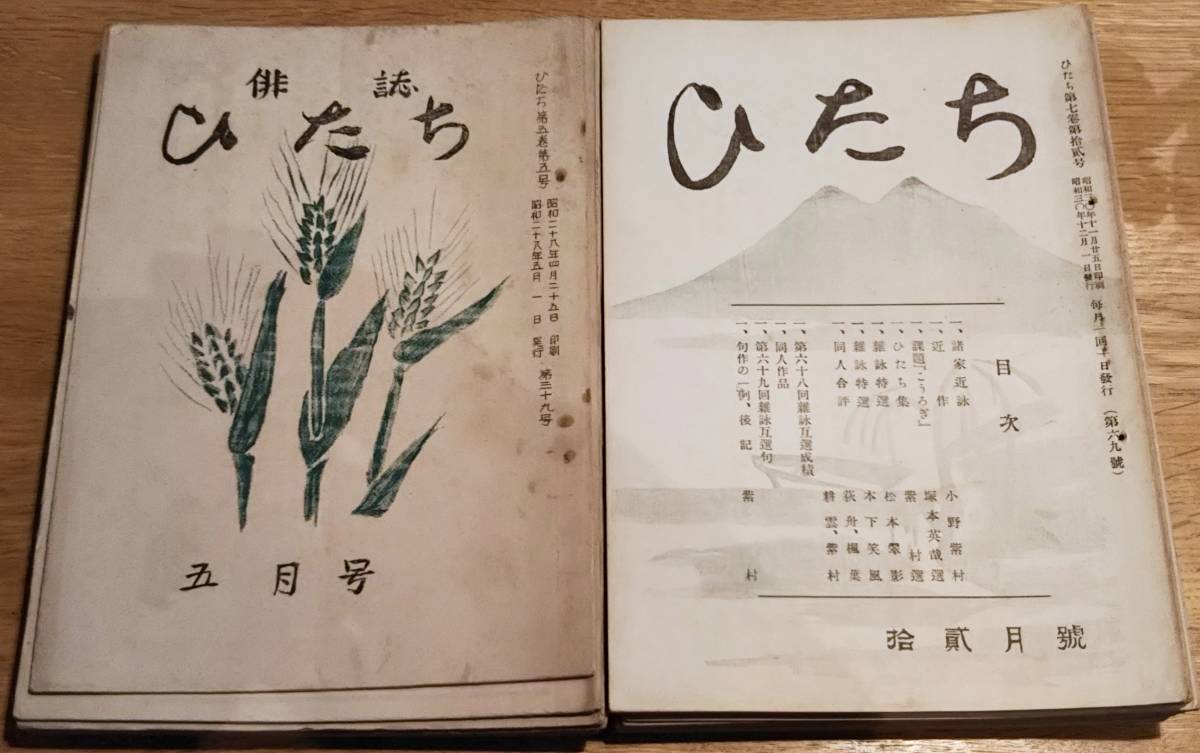 俳誌
ひたち
ひたち第五巻第五号
昭和二十八年四月二十五日 印刷
昭和二十八年五月 一 日 発行
第三十九号
五月号
ひたち
ひたち第七巻第拾貳号
昭和三〇年十一月廿五日印刷
昭和三〇年十二月 一日發行
毎月一回一日發行
(第六九號)
目次
一、諸家近詠
一、近作 小野紫村
一、課題『こうろぎ』 塚本英哉選
一、ひたち集 紫村選
一、雑詠特選 松本翠影
一、雑詠特選 木下笑風
一、同人合評 荻舟、楓葉
耕雲、紫村
一、第六十八回雑詠互選成績
一、同人作品
一、第六十九回雑詠互選句
一、句作の一例、後記 紫村
拾貳月號